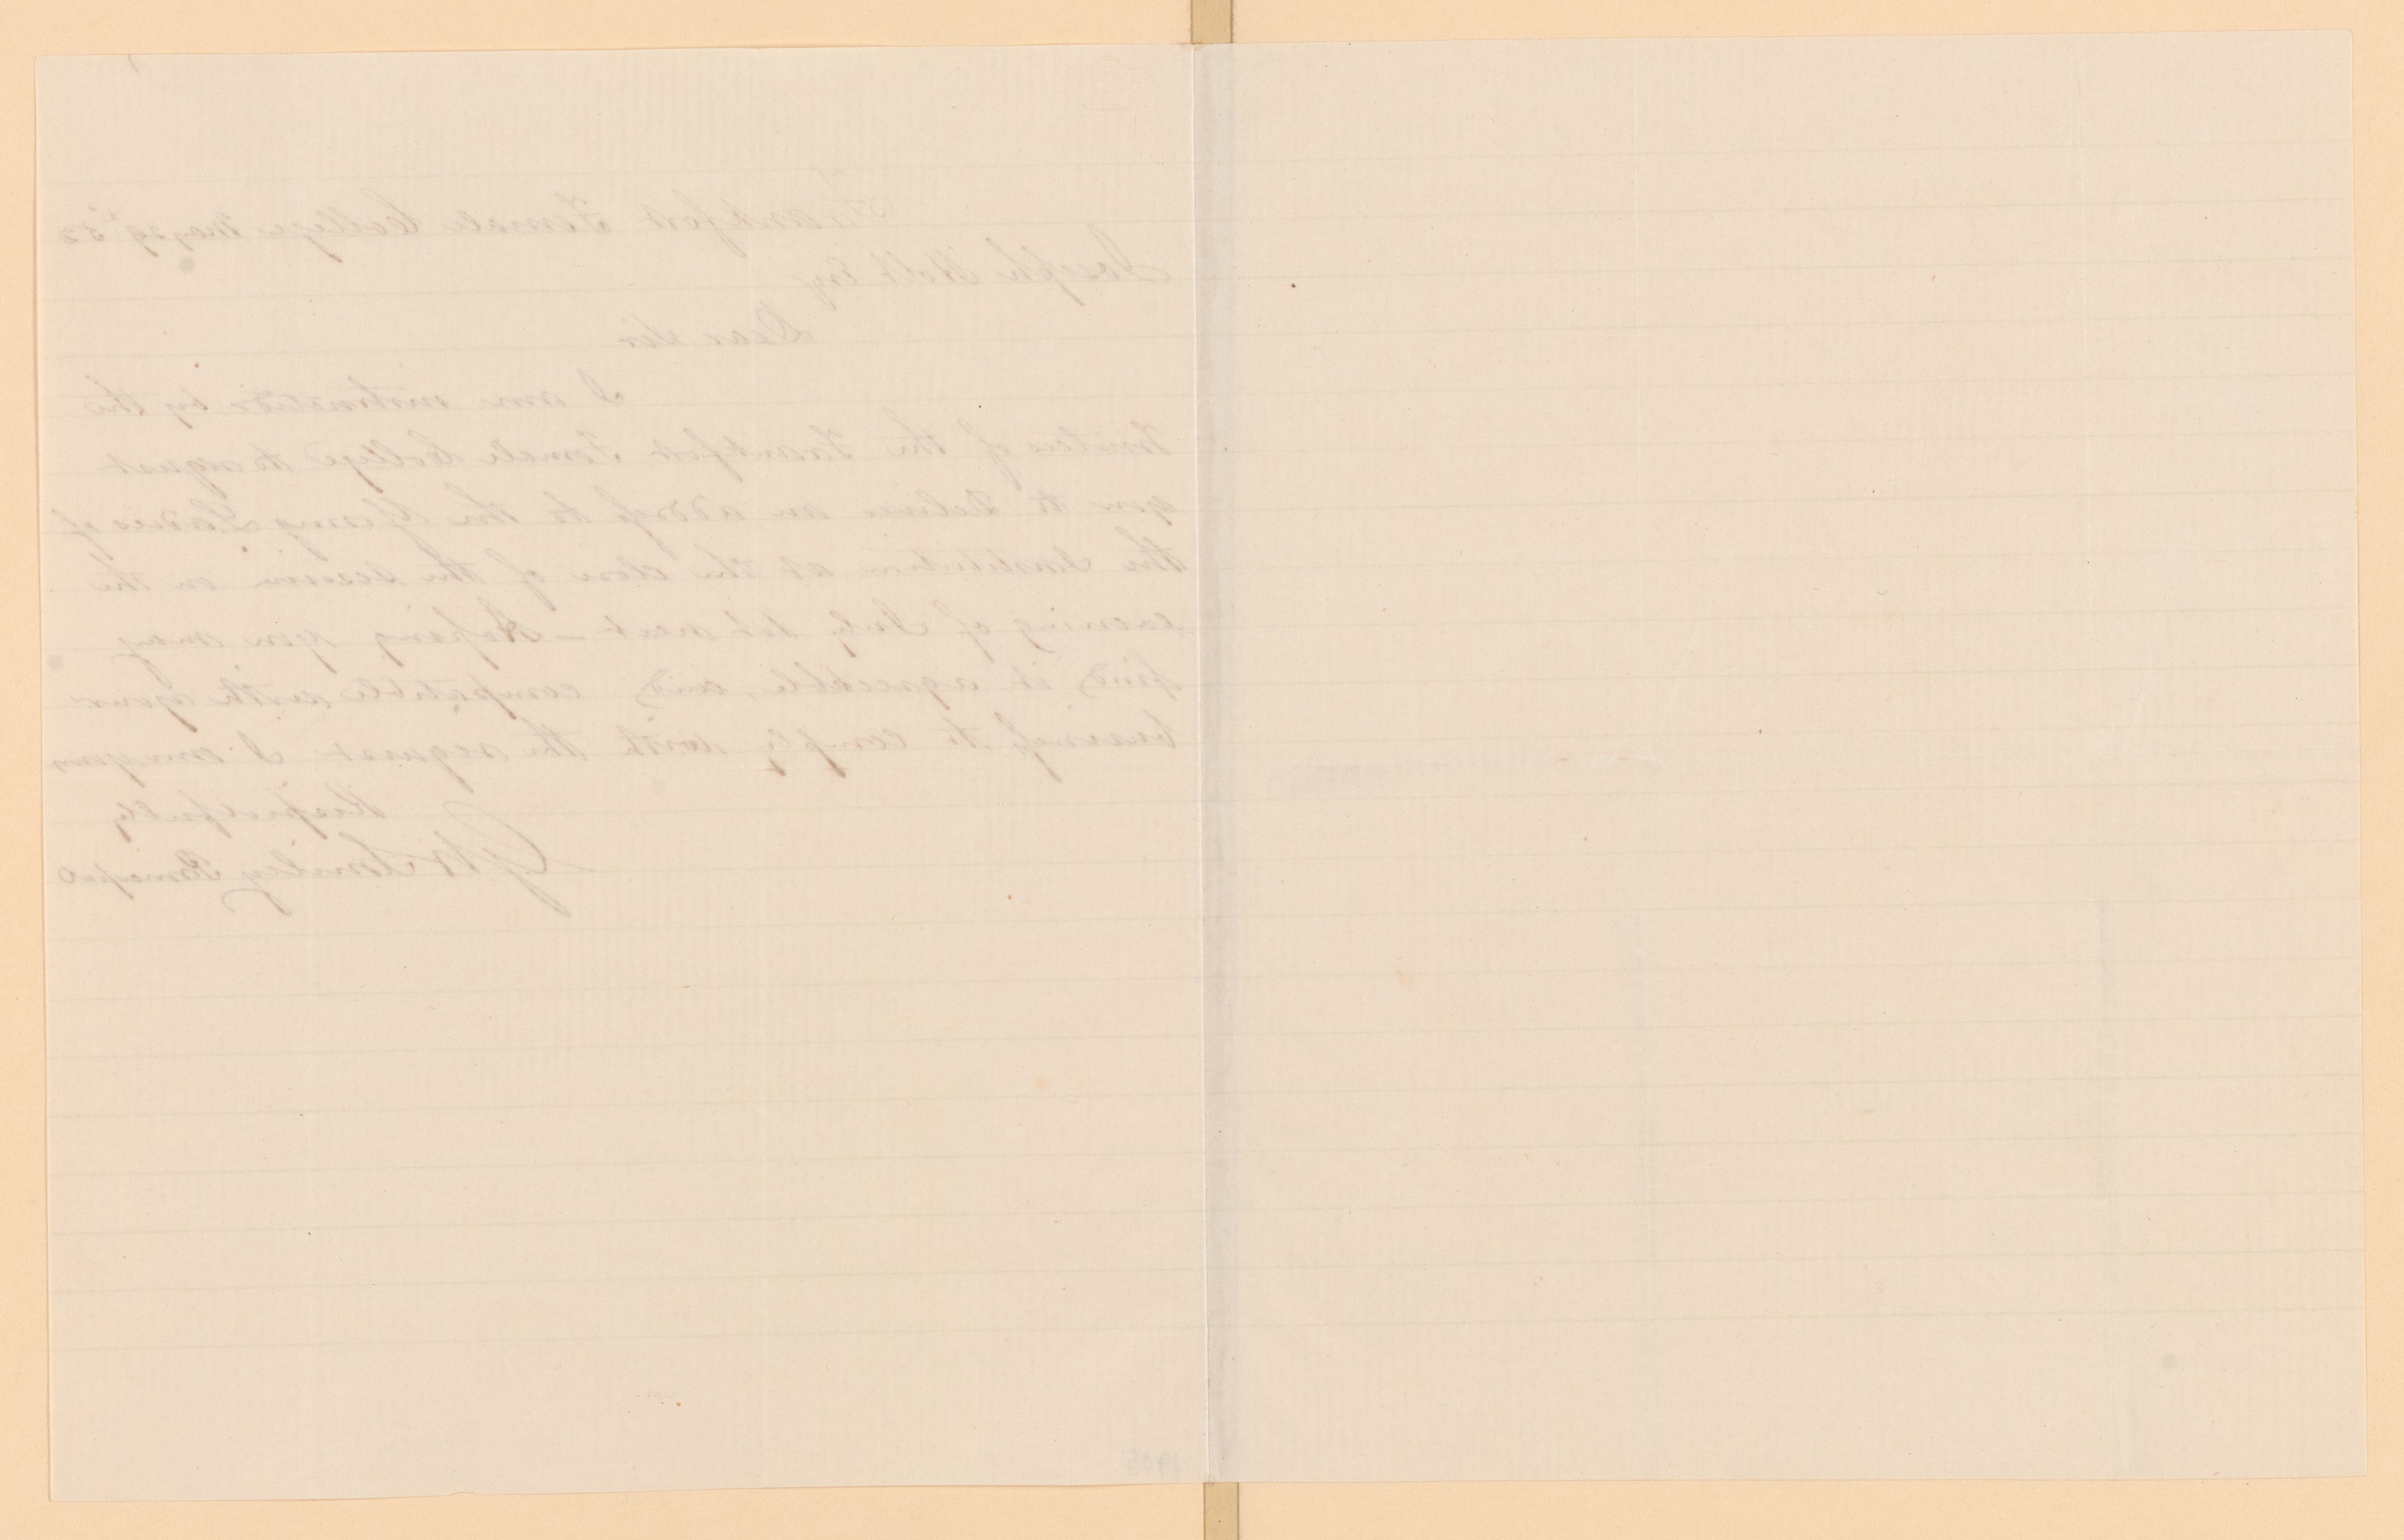 Frankfort Female College May 29 '52
Joseph Holt Esq
Dear Sir
I am instructed by the
Trustees of the Frankfort Female College to request
you to deliver an address to the Young Ladies of
the Institution at the close of the session on the
evening of July 1st next – Hoping you may
find it agreeable, and compatible with your
business to comply with the request I am yours
Respectfully
Principal